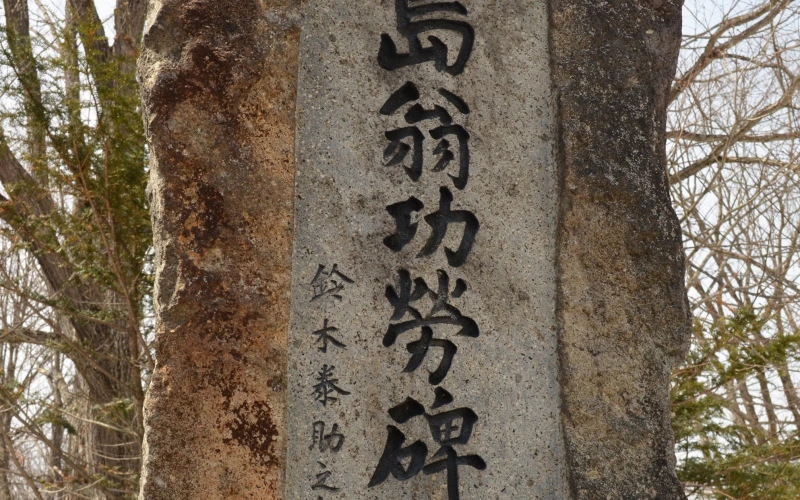 島翁功勞碑
鈴木泰助之